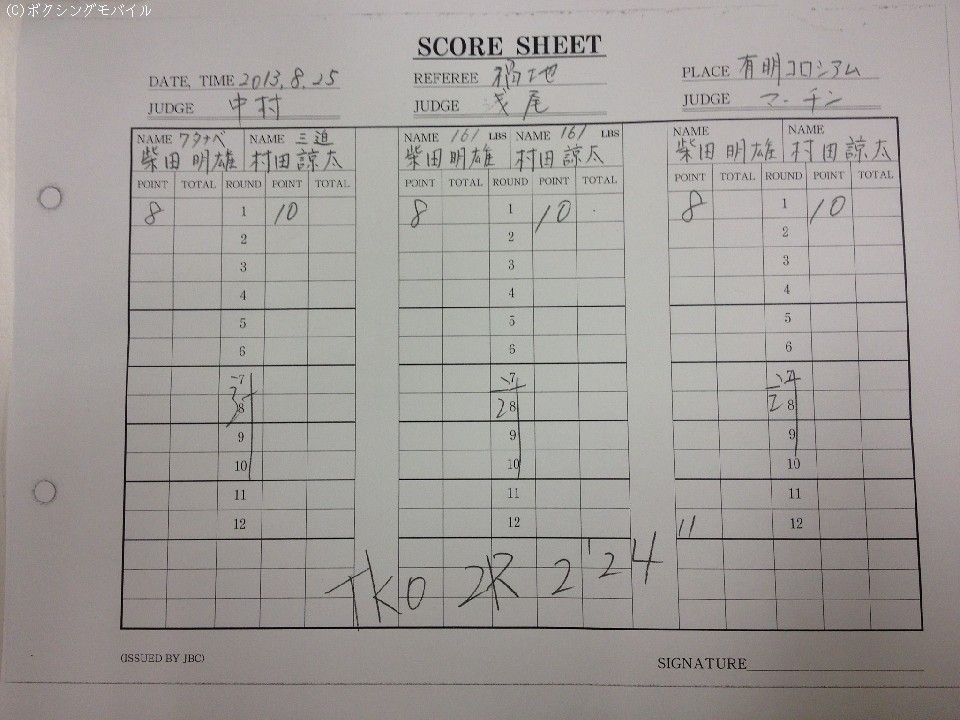 (C)ボクシングモバイル
SCORE SHEET
DATE, TIME 2013.8.25 REFEREE 福地 PLACE 有明コロシアム
JUDGE 中村 JUDGE 浅尾 JUDGE マーチン
NAME ワタナベ NAME 三迫 NAME 161 LBS NAME 161 LBS NAME NAME
柴田明雄 村田諒太 柴田明雄 村田諒太 柴田明雄 村田諒太
POINT TOTAL ROUND POINT TOTAL POINT TOTAL ROUND POINT TOTAL POINT TOTAL ROUND POINT TOTAL
8 1 10 8 1 10 8 1 10
2 2 2
3 3 3
4 4 4
5 5 5
6 6 6
7 7 7
8 8 8
9 9 9
10 10 10
11 11 11
12 12 12
TKO 2R 2'24"
(ISSUED BY JBC) SIGNATURE